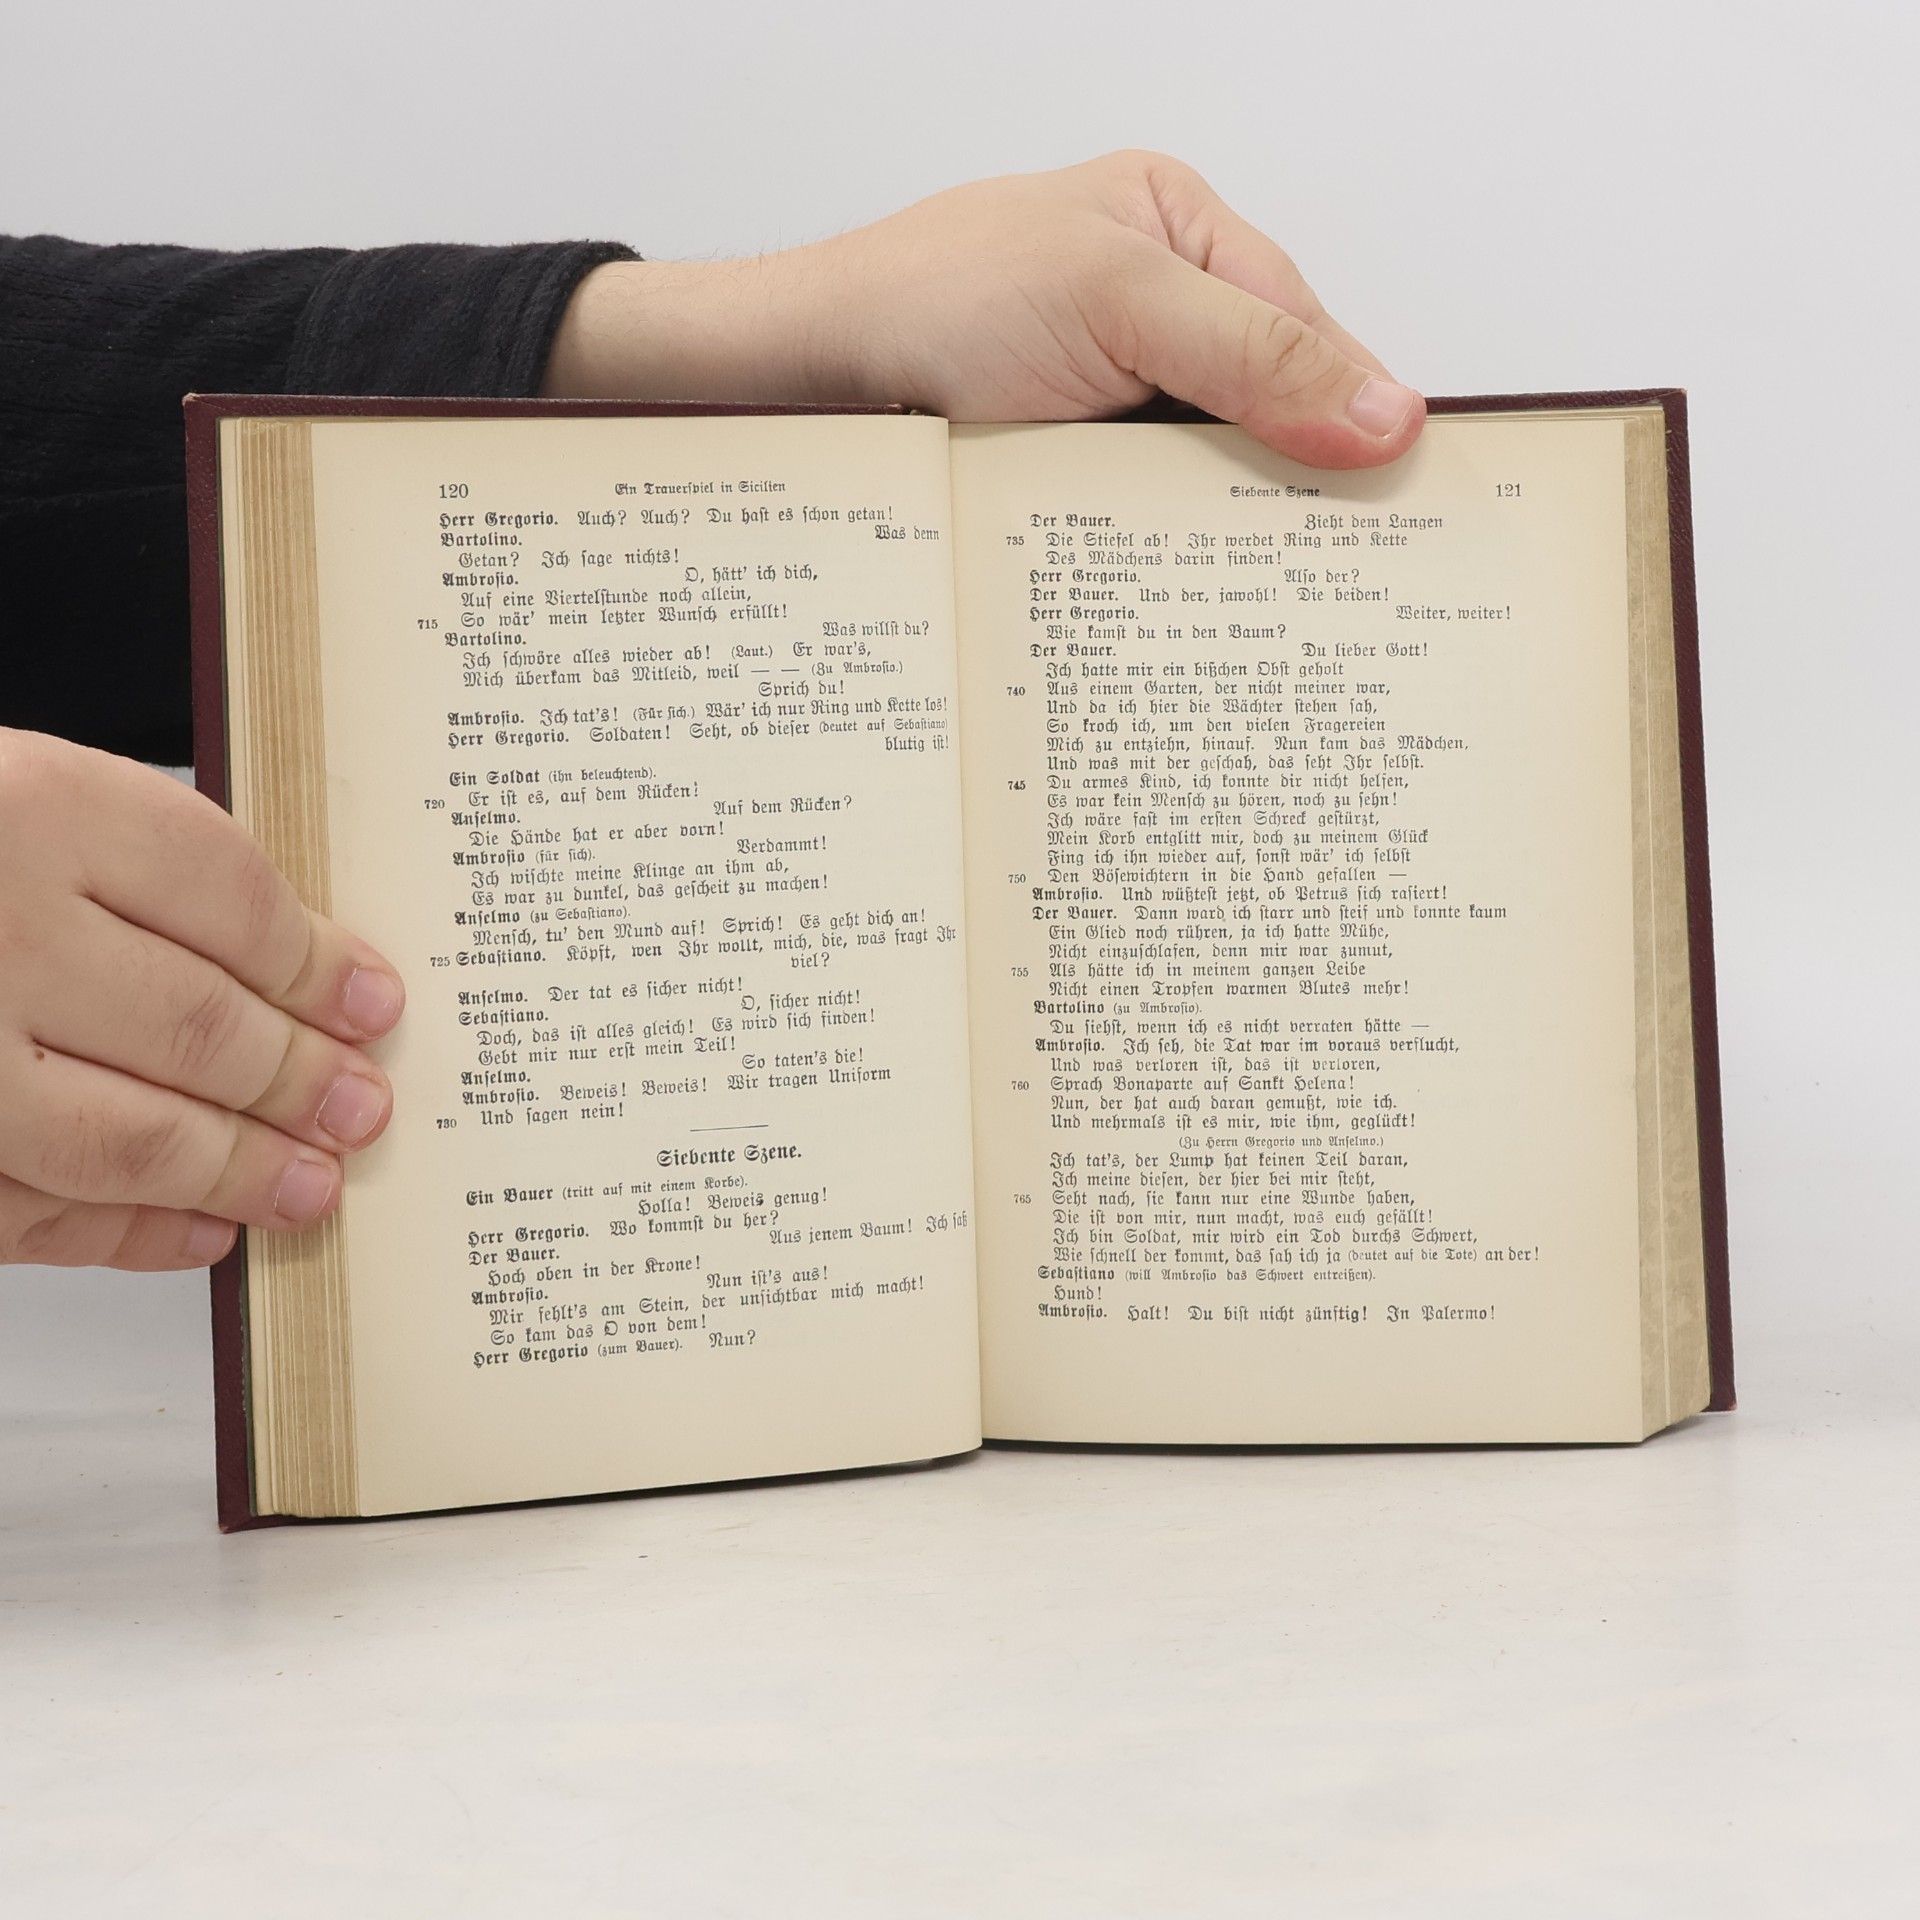 120 Ein Trauerspiel in Sicilien
Herr Gregorio. Auch? Auch? Du hast es schon getan!
Bartolino. Was denn
Getan? Ich sage nichts!
Ambrosio. O, hätt' ich dich,
Auf eine Viertelstunde noch allein,
715 So wär' mein letzter Wunsch erfüllt!
Bartolino. Was willst du?
Ich schwöre alles wieder ab! (Laut.) Er war's,
Mich überkam das Mitleid, weil — — (Zu Ambrosio.)
Sprich du!
Ambrosio. Ich tat's! (Für sich.) Wär' ich nur Ring und Kette los!
Herr Gregorio. Soldaten! Seht, ob dieser (deutet auf Sebastiano)
blutig ist!
Ein Soldat (ihn beleuchtend).
720 Er ist es, auf dem Rücken!
Anselmo. Auf dem Rücken?
Die Hände hat er aber vorn!
Ambrosio (für sich). Verdammt!
Ich wischte meine Klinge an ihm ab,
Es war zu dunkel, das gescheit zu machen!
Anselmo (zu Sebastiano).
Mensch, tu' den Mund auf! Sprich! Es geht dich an!
725 Sebastiano. Köpft, wen Ihr wollt, mich, die, was fragt Ihr
viel?
Anselmo. Der tat es sicher nicht!
Sebastiano. O, sicher nicht!
Doch, das ist alles gleich! Es wird sich finden!
Gebt mir nur erst mein Teil!
Anselmo. So taten's die!
Ambrosio. Beweis! Beweis! Wir tragen Uniform
730 Und sagen nein!
Siebente Szene.
Ein Bauer (tritt auf mit einem Korbe).
Holla! Beweis genug!
Herr Gregorio. Wo kommst du her?
Der Bauer. Aus jenem Baum! Ich saß
Hoch oben in der Krone!
Ambrosio. Nun ist's aus!
Mir fehlt's am Stein, der unsichtbar mich macht!
So kam das O von dem!
Herr Gregorio (zum Bauer). Nun?
Siebente Szene 121
Der Bauer. Zieht dem Langen
735 Die Stiefel ab! Ihr werdet Ring und Kette
Des Mädchens darin finden!
Herr Gregorio. Also der?
Der Bauer. Und der, jawohl! Die beiden!
Herr Gregorio. Weiter, weiter!
Wie kamst du in den Baum?
Der Bauer. Du lieber Gott!
Ich hatte mir ein bißchen Obst geholt
740 Aus einem Garten, der nicht meiner war,
Und da ich hier die Wächter stehen sah,
So kroch ich, um den vielen Fragereien
Mich zu entziehn, hinauf. Nun kam das Mädchen,
Und was mit der geschah, das seht Ihr selbst.
745 Du armes Kind, ich konnte dir nicht helfen,
Es war kein Mensch zu hören, noch zu sehn!
Ich wäre fast im ersten Schreck gestürzt,
Mein Korb entglitt mir, doch zu meinem Glück
Fing ich ihn wieder auf, sonst wär' ich selbst
750 Den Bösewichtern in die Hand gefallen —
Ambrosio. Und wüßtest jetzt, ob Petrus sich rasiert!
Der Bauer. Dann ward ich starr und steif und konnte kaum
Ein Glied noch rühren, ja ich hatte Mühe,
Nicht einzuschlafen, denn mir war zumut,
755 Als hätte ich in meinem ganzen Leibe
Nicht einen Tropfen warmen Blutes mehr!
Bartolino (zu Ambrosio).
Du siehst, wenn ich es nicht verraten hätte —
Ambrosio. Ich seh, die Tat war im voraus verflucht,
Und was verloren ist, das ist verloren,
760 Sprach Bonaparte auf Sankt Helena!
Nun, der hat auch daran gemußt, wie ich.
Und mehrmals ist es mir, wie ihm, geglückt!
(Zu Herrn Gregorio und Anselmo.)
Ich tat's, der Lump hat keinen Teil daran,
Ich meine diesen, der hier bei mir steht,
765 Seht nach, sie kann nur eine Wunde haben,
Die ist von mir, nun macht, was euch gefällt!
Ich bin Soldat, mir wird ein Tod durchs Schwert,
Wie schnell der kommt, das sah ich ja (deutet auf die Tote) an der!
Sebastiano (will Ambrosio das Schwert entreißen).
Hund!
Ambrosio. Halt! Du bist nicht zünftig! In Palermo!